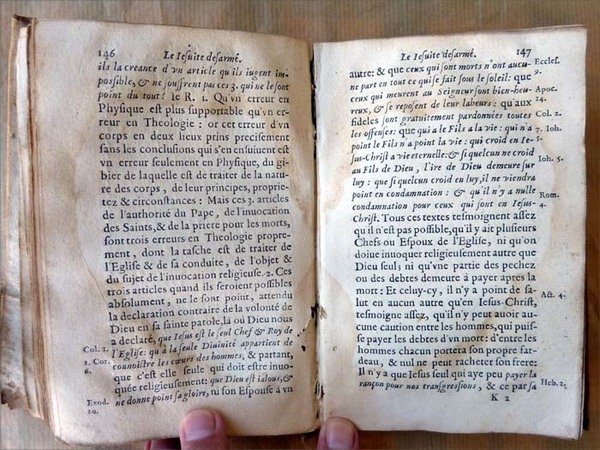 146
Le Iesuite desarmé.
ils la creance d'vn article qu'ils iugent im-
possible, & ne souffrent pas ces 3. qui ne le sont
point du tout? le R. 1. Qu'vn erreur en
Physique est plus supportable qu'vn er-
reur en Theologie : or cet erreur d'vn
corps en deux lieux prins precisement
sans les conclusions qui s'en ensuiuent est
vn erreur seulement en Physique, du gi-
bier de laquelle est de traiter de la natu-
re des corps, de leur principes, proprie-
tez & circonstances : Mais ces 3. articles
de l'authorité du Pape, de l'inuocation
des Saints, & de la priere pour les morts,
sont trois erreurs en Theologie propre-
ment, dont la tasche est de traiter de
l'Eglise & de sa conduite, de l'objet &
du sujet de l'inuocation religieuse. 2. Ces
trois articles quand ils seroient possibles
absolument, ne le sont point, attendu
la declaration contraire de la volonté de
Dieu en sa sainte parole, là où Dieu nous
a declaré, que Iesus est le seul Chef & Roy de
Col. 2. l'Eglise: qu'à la seule Diuinité appartient de
2. Cor. connoistre les cœurs des hommes, & partant,
6. que c'est elle seule qui doit estre inuo-
quée religieusement: que Dieu est ialoux, &
Exod. ne donne point sa gloire, ni son Espouse à vn
20.
Le Iesuite desarmé.
147
autre: & que ceux qui sont morts n'ont aucu- Eccles.
ne part en tout ce qui se fait sous le soleil: que 9.
ceux qui meurent au Seigneur sont bien-heu- Apoc.
reux, & se reposent de leur labeurs: qu'aux 14.
fideles sont gratuitement pardonnées toutes Col. 2.
les offenses: que qui a le Fils a la vie: qui n'a 7. Ioh.
point le Fils n'a point la vie: qui croid en Ie- 5.
sus-Christ a vie eternelle: & si quelcun ne croid
au Fils de Dieu, l'ire de Dieu demeure sur Ioh. 5.
luy: que si quelcun croid en luy, il ne viendra
point en condamnation: & qu'il n'y a nulle Rom.
condamnation pour ceux qui sont en Iesus- 4.
Christ. Tous ces textes tesmoignent assez
qu'il n'est pas possible, qu'il y ait plusieurs
Chefs ou Espoux de l'Eglise, ni qu'on
doiue inuoquer religieusement autre que
Dieu seul; ni qu'vne partie des pechez
ou des debtes demeure à payer apres la
mort: Et celuy-cy, il n'y a point de sa- Act. 4.
lut en aucun autre qu'en Iesus-Christ,
tesmoigne assez, qu'il n'y peut auoir au-
cune caution entre les hommes, qui puis-
se payer les debtes d'vn mort: d'entre les
hommes chacun portera son propre far-
deau, & nul ne peut racheter son frere:
Il n'y a que Iesus seul qui aye peu payer la
rançon pour nos transgressions, & ce par sa Heb. 2.
K 2